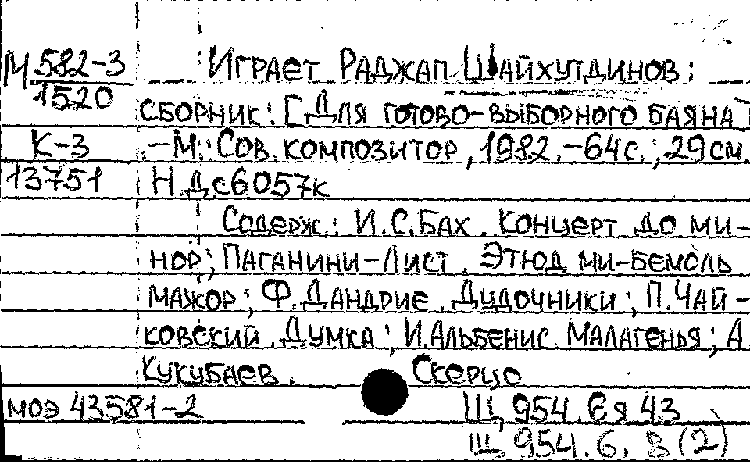 М 582-3 Играет Раджап Шайхутдинов:
1520 сборник: [Для готово-выборного баяна]
К-3 .-М.: Сов. композитор, 1982.-64с.; 29см.
13751 Н.д.с6057к
Содерж.: И.С.Бах. Концерт до ми-
нор; Паганини-Лист. Этюд ми-бемоль
мажор; Ф.Дандрие. Дудочники; П.Чай-
ковский. Думка; И.Альбенис. Малагенья; А.
Кукубаев. Скерцо
МОЭ 43581-2 Щ 954.6я43
Щ 954.6, 8(2)